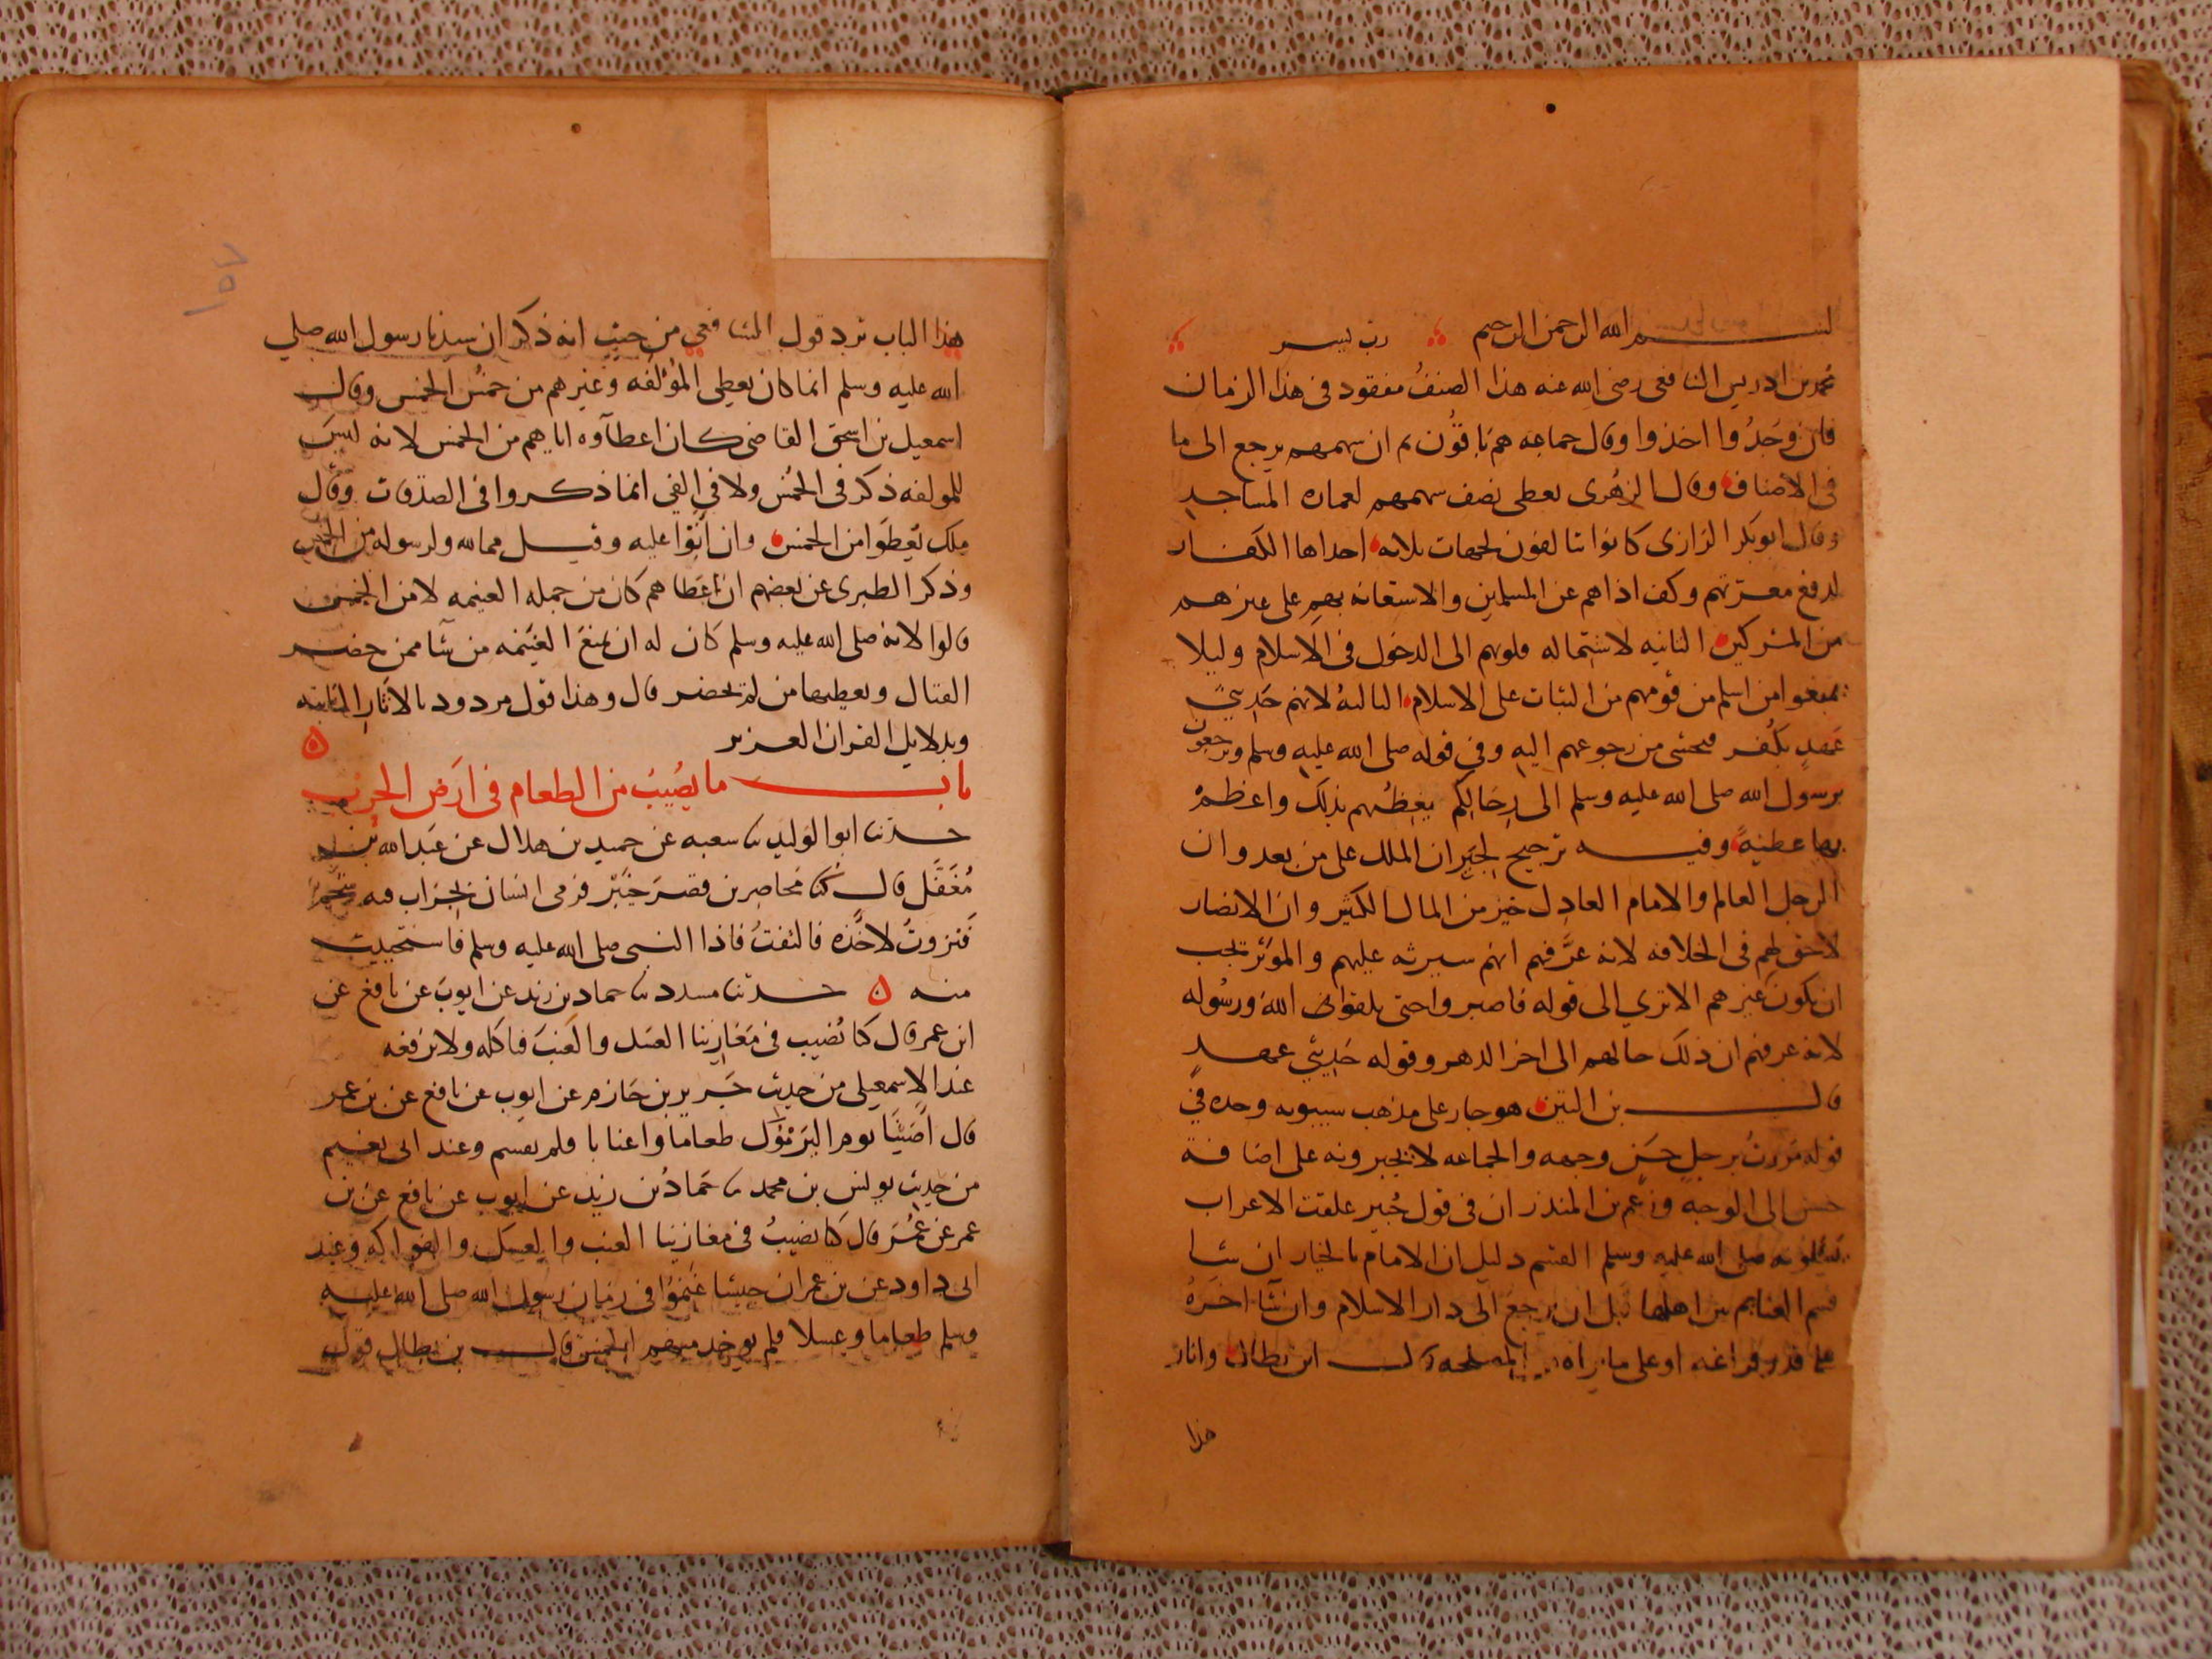 بسم الله الرحمن الرحيم رب يسر
محمد بن ادريس الشافعى رضى الله عنه هذا الصنف مفقود فى هذا الزمان
فان وجدوا اخذوا وقال جماعه هم باقون ثم ان سهمهم يرجع الى ما
فى الاصناف وقال الزهرى يعطى نصف سهمهم لعماره المساجد
وقال ابوبكر الرازى كانوا يتالفون لجهات ثلاثه احداها الكفار
لدفع معرتهم وكف اذاهم عن المسلمين والاستعانه بهم على غيرهم
من المشركين الثانيه لاستماله قلوبهم الى الدخول فى الاسلام وليلا
يمنعوا من اسلم من قومهم من الثبات على الاسلام الثالثه لانهم حديثي
عهد بكفر فخشى من رجوعهم اليه وفي قوله صلى الله عليه وسلم وترجعون
برسول الله صلى الله عليه وسلم الى رحالكم يغبطهم بذلك واعظم
بها عطية وفيه ترجيح لجيران الملك على من بعد وان
الرجل العالم والامام العادل خير من المال الكثير وان الانصار
لا حق لهم فى الخلافه لانه عرفهم انهم سيرثه عليهم والموثر يجب
ان يكون غيرهم الا ترى الى قوله فاصبروا حتى تلقوا الله ورسوله
لانه عرفهم ان ذلك حالهم الى اخر الدهر وقوله حديثي عهد
قال بن التين هو جار على مذهب سيبويه وحده في
قوله مررت برجل حسن وجهه والجماعه لا يجيزونه على اضافة
حسن الى الوجه وزعم بن المنذر ان فى قول جبير علقت الاعراب
يسئلونه صلى الله عليه وسلم القسم دليل ان الامام بالخيار ان شا
قسم الغنايم بين اهلها قبل ان يرجع الى دار الاسلام وان شا اخره
على قدر فراغه او على ما يراه المصلحه قال ابن بطال واثار
هذا
هذا الباب ترد قول الشافعي من حيث انه ذكر ان سيدنا رسول الله صلي
الله عليه وسلم انما كان يعطى المؤلفه وغيرهم من خمس الخمس وقال
اسمعيل بن اسحق القاضى كان اعطآوه اياهم من الخمس لانه ليس
للمولفه ذكر فى الخمس ولا في الفي انما ذكروا فى الصدقات وقال
ملك يعطوا من الخمس وان ابوا عليه وقيل مما لله ولرسوله من الخمس
وذكر الطبرى عن بعضهم ان اعطاهم كان من جمله الغنيمه لا من الخمس
قالوا لانه صلى الله عليه وسلم كان له ان يمنع الغنيمه من شا ممن حضر
القتال ويعطيها من لم يحضر قال وهذا قول مردود بالاثار الثابته
وبدلايل القران العزيز ه
باب ما يصيب من الطعام فى ارض الحرب
حدثنا ابو الوليد ثنا شعبه عن حميد بن هلال عن عبد الله بن
مغفل قال كنا محاصرين قصر خيبر فرمى انسان بجراب فيه شحم
فنزوت لاخذه فالتفت فاذا النبى صلى الله عليه وسلم فاستحييت
منه ه حدثنا مسدد ثنا حماد بن زيد عن ايوب عن نافع عن
ابن عمر قال كنا نصيب فى مغازينا العسل والعنب فناكله ولا نرفعه
عند الاسمعيلى من حديث جرير بن حازم عن ايوب عن نافع عن بن عمر
قال اصبنا يوم اليرموك طعاما واعنابا فلم يقسم وعند ابى نعيم
من حديث يونس بن محمد ثنا حماد بن زيد عن ايوب عن نافع عن بن
عمر عن عمر قال كنا نصيب فى مغازينا العنب والعسل والفواكه وعند
ابى داود عن بن عمر ان جيشا غنموا فى زمان رسول الله صلى الله عليه
وسلم طعاما وعسلا فلم يوخذ منهم الخمس قال بن بطال قول
١٥٧